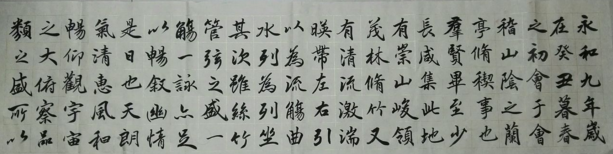 永和九年歲
在癸丑暮春
之初會于會
稽山陰之蘭
亭脩稧事也
群賢畢至少
長咸集此地
有崇山峻領
茂林脩竹又
有清流激湍
暎帶左右引
以為流觴曲
水列列坐
其次雖絲竹
管弦之盛一
觴一詠亦足
以暢敘幽情
是日也天朗
氣清惠風和
暢仰觀宇宙
之大俯察品
類之盛所以